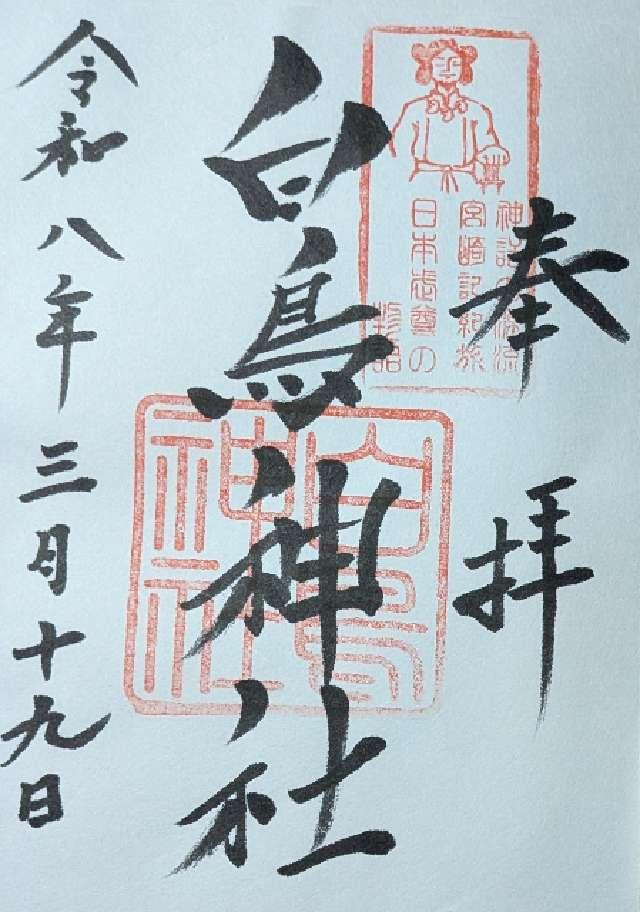 奉拝
神話の源流
宮崎記紀旅
日本武尊の
物語
白鳥神社
白鳥
神社
令和八年三月十九日